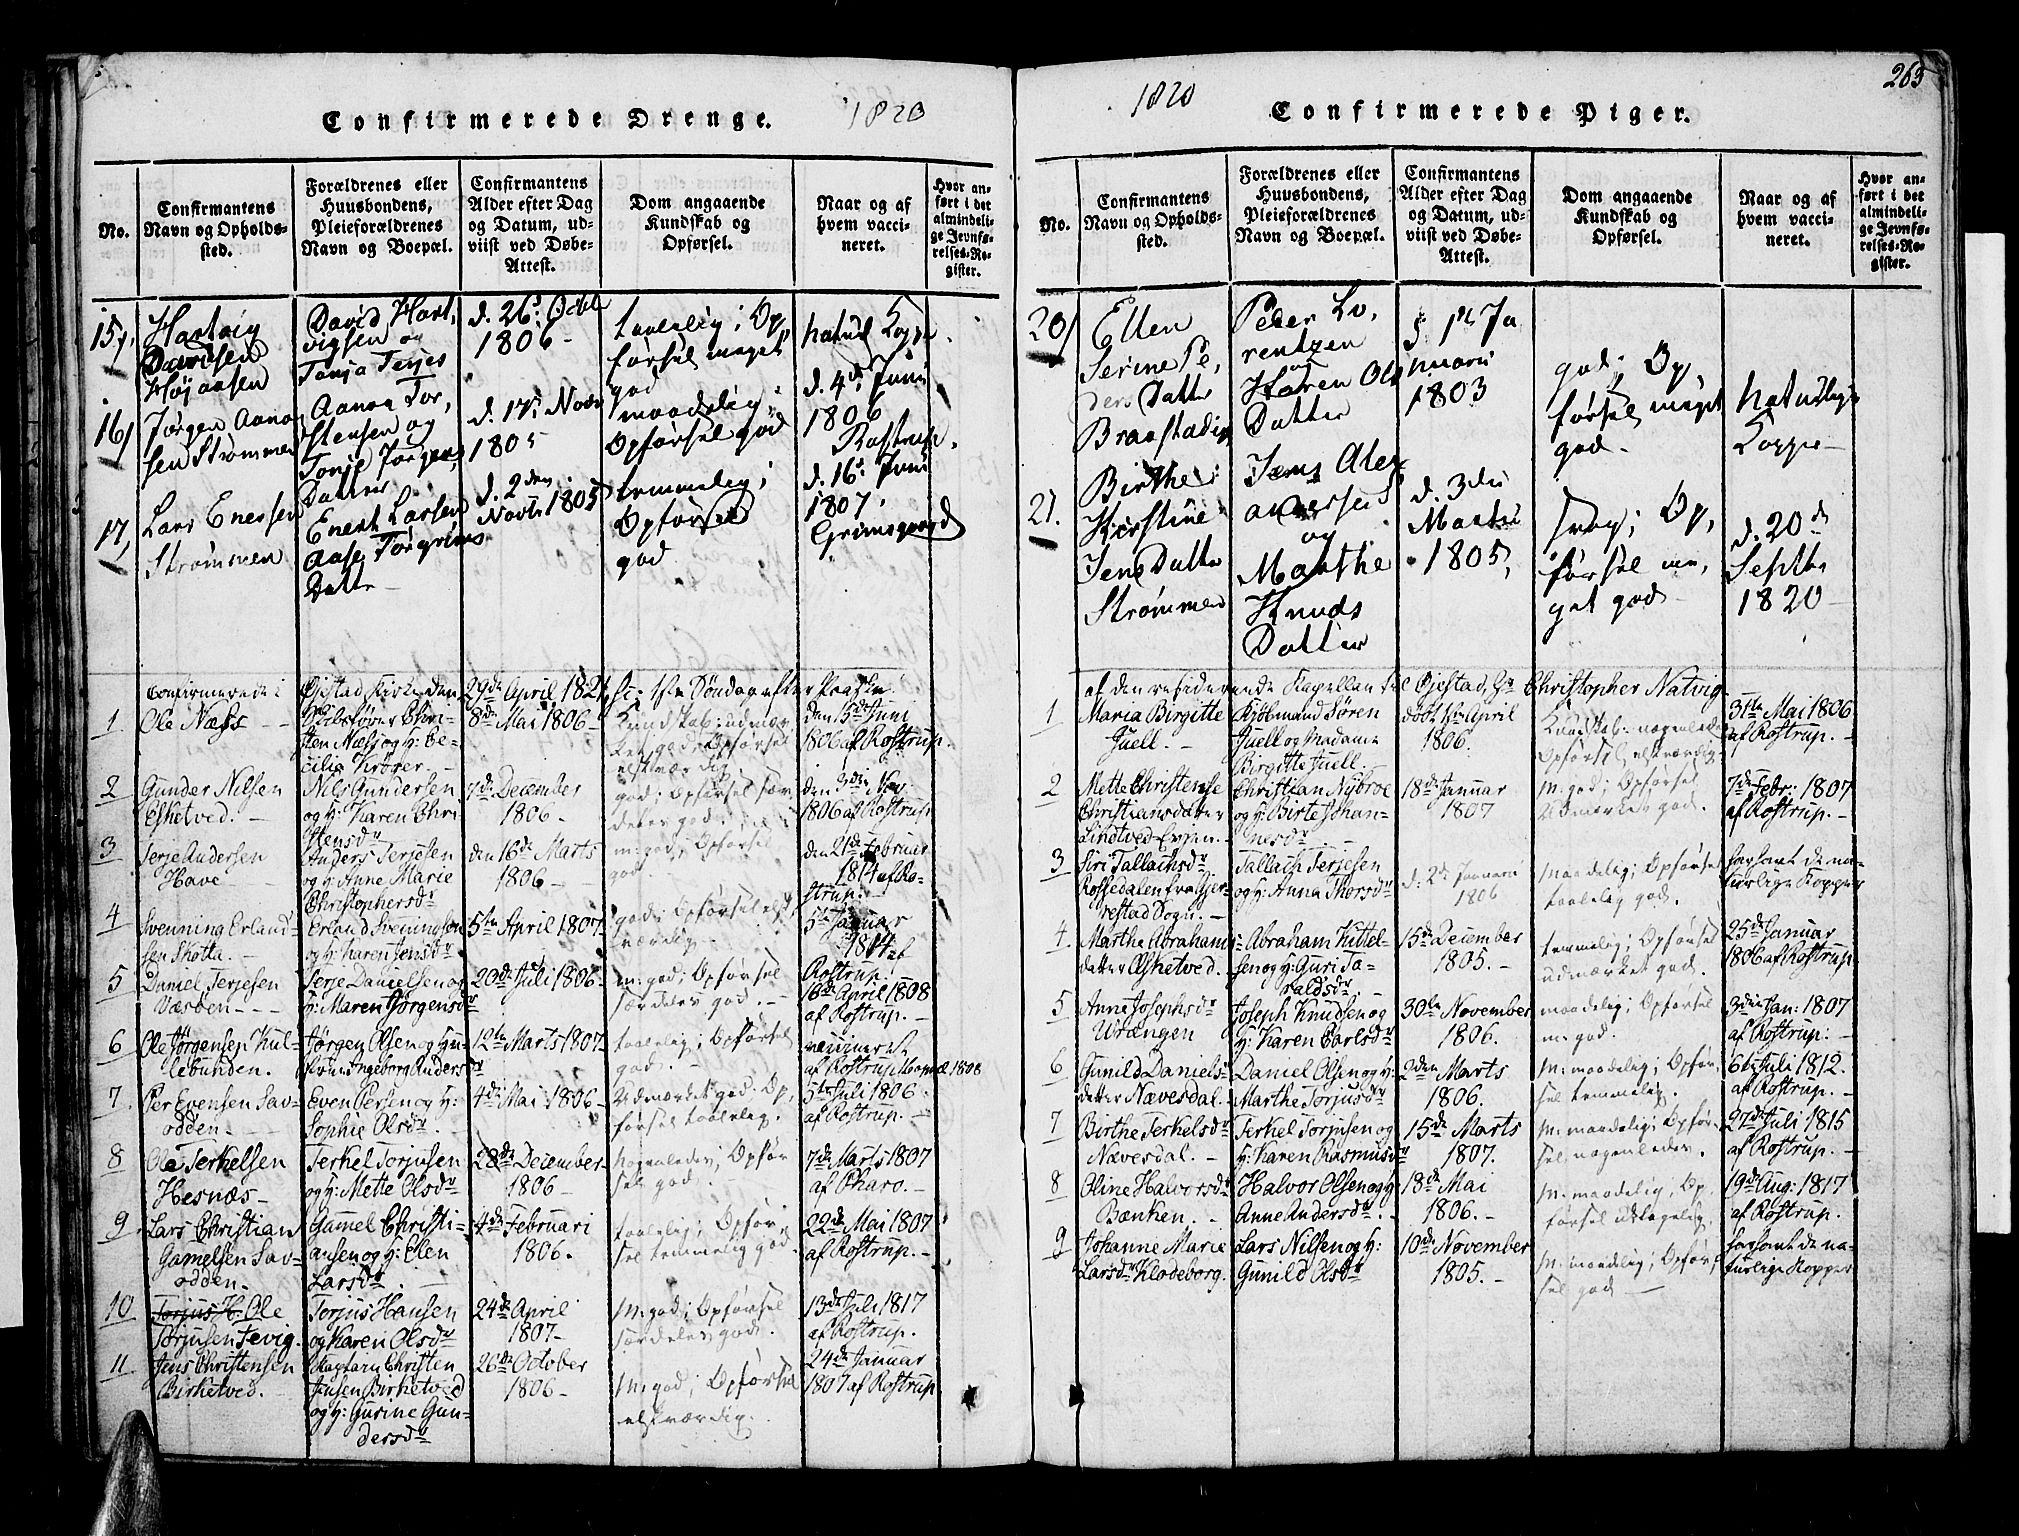 Confirmerede Drenge. 1820
No.
Confirmantens Navn og Opholds-sted.
Forældrenes eller Huusbondens, Pleieforældrenes Navn og Boepæl.
Confirmantens Alder efter Dag og Datum, ud-viist ved Døbe-Attest.
Dom angaaende Kundskab og Opførsel.
Naar og af hvem vacci-neret.
Hvor an-ført i det almindeli-ge Jevnfø-relses-Re-gister.
15,
Hartvig
Davidsen
Høyaasen
David Hart,
vigsen og
Tonja Terjes
d. 26d Octbr
1806 -
taalelig; Op,
førsel meget
god
naturl Kopper
16,
Jørgen Aanon
sen Strømmen
Aanon Tor,
stensen og
Tonje Jørgens
Datter
d. 17d Novbr
1805
maadelig;
Opførsel god
d. 4de Junii
1806
Rostrup.
17,
Lars Enersen
Strømmen
Enert Larsen
Aase Torgrims
Datter -
d. 2den
Novbr 1805
temmelig;
Opførsel
god
d. 16d Junii
1807
Grimsgaard
Confirmerede i Øjestad Kirke den 29de April 1821, sc: 1ste Søndag efter Paaske
1
Ole Næss
Christen Næss og H: Cecilia Krøger.
8de Mai 1806
Kundskab: udmær
ket god; Opførsel
elskværdig
den 15de Juni
1806 af Rostrup.
2
Gunder Nilsen
Esketved.
Nils Gundersen
og H: Karen Chri
stensdr
7de December
1806. -
god; Opførsel sær
deles god.
den 3die Nov:
1806 af Rostrup
3
Terje Andersen
Have
Anders Terjesen
og H: Anne Marie
Christophersdr
den 16de Marts
1806 -
m: god; Opførsel
god.
den 21de Februar
1814 af Ro-
strup.
4
Svenning Erland-
sen Skotta.
Erland Svenningsen
og H: Karen Jensdr
5te April 1807.
god; Opførsel elsk
værdig.
5te Januar
1814 af
Rostrup.
5
Daniel Terjesen
Væsben
Terje Danielsen og
H: Maren Jørgensdr
20de Juli 1806.
m: god; Opførsel
særdeles god.
16de April 1808
af Rostrup. -
6
Ole Jørgensen Kul-
lebunden.
Jørgen Olsen og Hu-
stru Ingeborg Andersdr
12te Marts 1807
taalelig; Opførsel
god.
vaccineret
af Rostrup 1808
7
Per Evensen Sav-
odden.
Even Persen og H:
Sophie Olsdr
4de Mai 1806
Udmærket god. Op,
førsel taalelig.
5te Juli 1806.
af Rostrup. -
8
Ole Terkelsen
Hesnæs
Terkel Torjusen
og H: Mette Olsdr
28de December
1806 -
nogenledes; Opfør
sel god.
7de Marts 1807
af Pharo. -
9
Lars Christian
Gamelsen Sav-
odden.
Gamel Christi-
ansen og H: Elen
Larsdr
4de Februari
1806.
taalelig; Opfør,
sel temmelig god.
22de Mai 1807
af Rostrup. -
10
Torjus H. Ole
Torjusen Fevig.
Torjus Hansen
og Karen Olsdr
24de April
1807 -
M: god; Opførsel
særdeles god.
13de Juli 1817
af Rostrup.
11
Jens Christensen
Birketved.
Christen
Jensen Birketved
og H: Gurine Gun-
dersdr
26de October
1806 -
M: god; Opførsel
elskværdig.
24de Januar
1807 af Rostrup
1820 Confirmerede Piger.
263
No.
Confirmantens Navn og Opholds-sted.
Forældrenes eller Huusbondens, Pleieforældrenes Navn og Boepæl.
Confirmantens Alder efter Dag og Datum, ud-viist ved Døbe-Attest.
Dom angaaende Kundskab og Opførsel.
Naar og af hvem vacci-neret.
Hvor an-ført i det almindeli-ge Jevnfø-relses-Re-gister.
20,
Ellen
Serine Pe,
ders Datter
Braastad
Peder Lo,
rentzen
og
Karen Ols
Datter
d. 1ste Ja
nuarii
1803
god; Op,
førsel meget
god.
naturlige
Kopper
21.
Birthe
Kirstine
Jens Datter
Strømmen
Jens Alex
andersen
og
Marthe
Knuds
Datter
d. 3die
Martii
1805,
svag; Op,
førsel me,
get god
d. 20de
Septbr
1820
af den residerende Kapellan til Øjestad, Hr Christopher Natvig
1
Maria Birgitte
Juell. -
Kjøbmand Søren
Juell og Madame
Birgitte Juell.
døbt 1ste April
1806.
Kundskab: nogenledes
Opførsel elskværdig
31te Mai 1806
af Rostrup. -
2
Mette Christense
Christiansdatter
Lindtved
Christian Nybroe
og H: Birte Johan-
nesdr
18de Januar
1807
M: god; Opførsel
Udmærket god.
7de Febr: 1807
af Rostrup. -
3
Siri Tallachsdr
Rossedalen fra Gjer-
restad Sogn. -
Tallach Terjesen
og H: Anna Thorsdr
d: 2de Januarii
1806
Maadelig; Opførsel
taalelig god.
har havt de na-
turlige Kopper
4
Marthe Abrahams-
datter Æsketved.
Abraham Kittel-
sen og H: Guri Ta-
raldsdr
15de December
1805. -
temmelig; Opførsel
udmærket god.
25de Januar
1806 af Rostrup
5
Anne Josephsdr
Utrængen
Joseph Knudsen og
H: Karen Carlsdr
30te November
1806.
maadelig; Opførsel
m: god.
3die Jan: 1807
af Rostrup: -
6
Gunild Daniels-
datter Nævesdal.
Daniel Olsen og H:
Marthe Torjusdr
2den Marts
1806.
M: maadelig; Opfør-
sel temmelig.
6te Juli 1812.
af Rostrup. -
7
Birthe Terkelsdr
Nævesdal. -
Terkel Torjusen og
H: Karen Rasmusdr
15de Marts
1807.
M: maadelig; Opfør-
sel nogenledes.
27de Juli 1815
af Rostrup. -
8
Oline Halvorsdr
Bænken.
Halvor Olsen og H:
Anne Andersdr
18de Mai
1806. -
M: maadelig; Op,
førsel
19de Aug: 1817
af Rostrup.
9
Johanne Marie
Larsdr Klodeborg.
Lars Nilsen og H:
Gunild Olsdr
10de November
1805. -
M: maadelig; Opfør,
sel god
har havt de na-
turlige Kopper